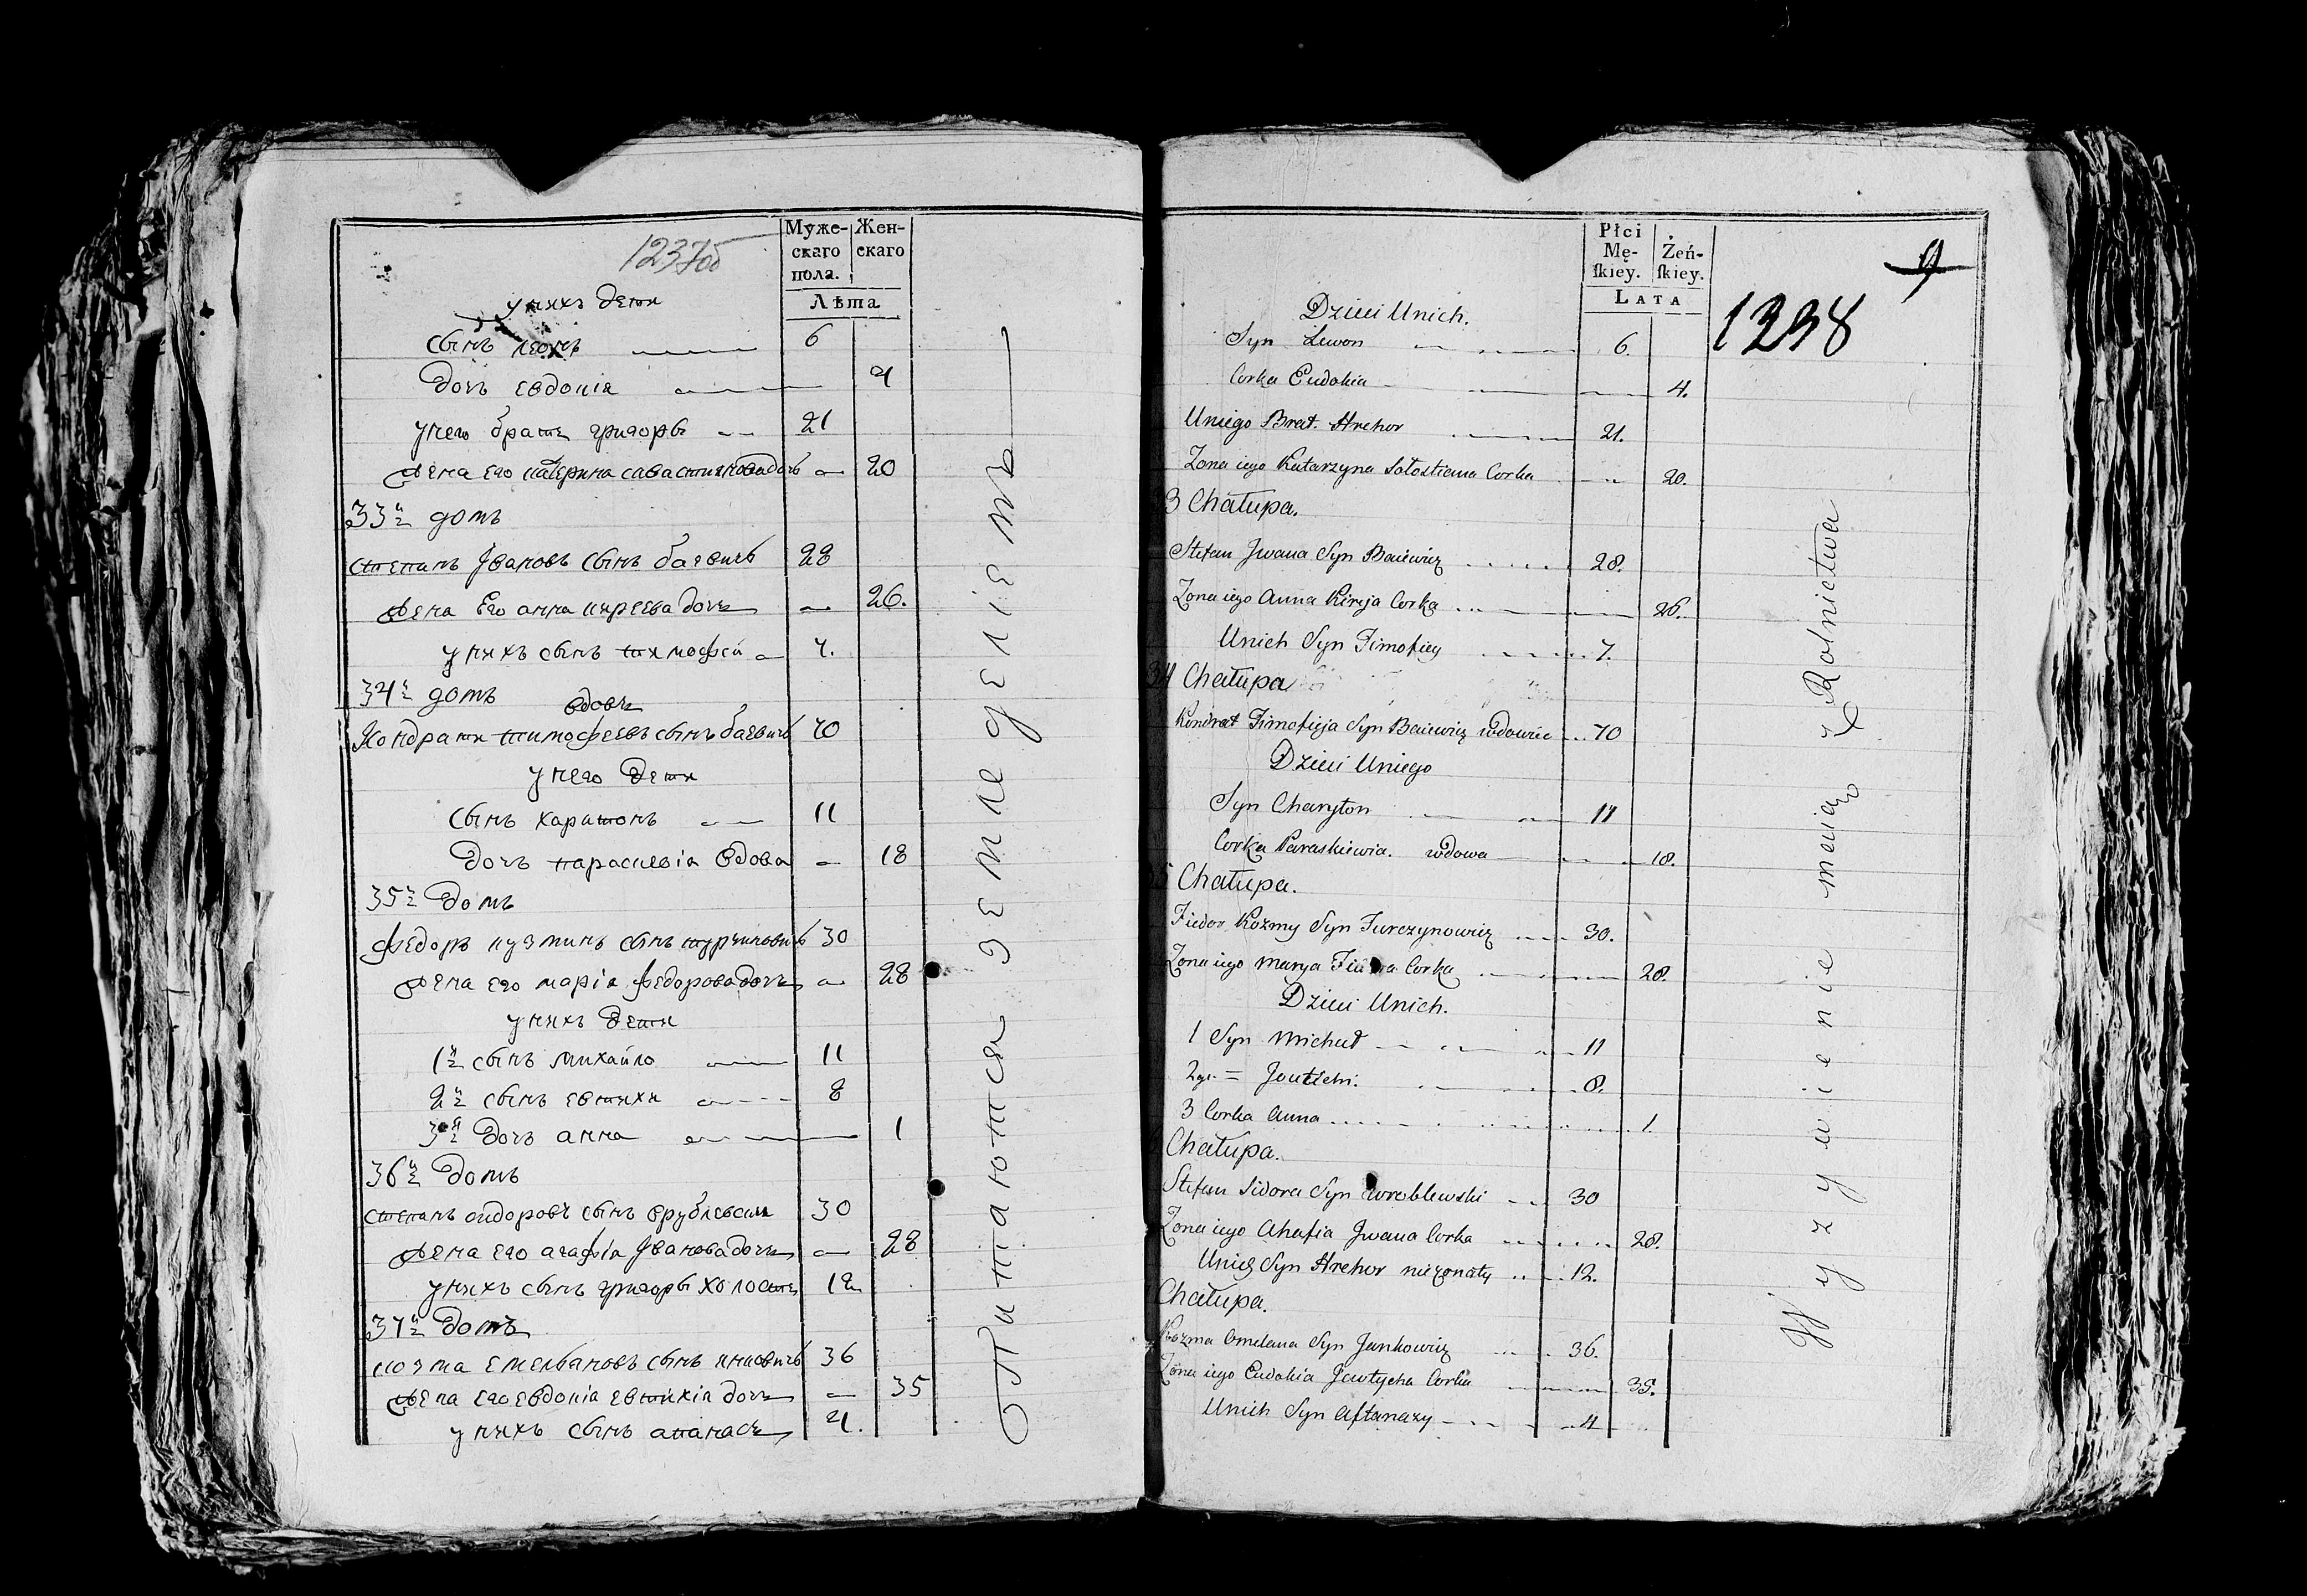 1237об
Муже-
скаго
пола.
Жен-
скаго
Лѣта
у нихъ дети
сынъ леонъ 6
дочь евдокія 4
у него братъ григорь 21
жена его катерина савастиянова дочь 20
33й домъ
степанъ Ивановъ сынъ баевичь 28
жена Его анна киреева дочь 26.
у нихъ сынъ тимофей 7.
34й домъ
вдовъ
Кондрати тимофеевъ сынъ баевичь 70
у него дети
сынъ харитонъ 11
дочь параскевія вдова 18
35й домъ
федоръ кузминъ сынъ турчиновичь 30
жена его марія федорова дочь 28
у нихъ дети
1й сынъ михайло 11
2й сынъ евтихи 8
3я дочь анна 1
36й домъ
степанъ сидоровъ сынъ врублевски 30
жена его агафія Иванова дочь 28
у нихъ сынъ григорь холостъ 12
37й домъ
козма емельановъ сынъ янковичь 36
жена его евдокія евтихія дочь 35
у нихъ сынъ апанасъ 4.
Питаются земледеліемъ
Płci
Mę-
ſkiey.
Żeń-
ſkiey.
LATA
9
1238
Dzieci Unich.
Syn Lewon 6.
Corka Eudokia 4.
Uniego Brat Hrehor 21.
Zona iego Katarzyna Corka 20.
3 Chałupa.
Stefan Jwana Syn Baiewicz 28.
Zona iego Anna Kireja Corka 26.
Unich Syn Timofiey 7.
34 Chałupa
Kondrat Timofieja Syn Baiewicz wdowiec 70
Dzieci Uniego
Syn Charyton 11
Corka Paraskiewia. wdowa 18.
5 Chałupa.
Fiedor Kozmy Syn Turczynowicz 30.
Zona iego Marya Corka 28.
Dzieci Unich.
1 Syn Michał 11
2gi = 8.
3 Corka Anna 1.
Chałupa.
Stefan Sidora Syn Wroblewski 30
Zona iego Ahafia Jwana Corka 28.
Unich Syn Hrehor niezonaty 12.
Chałupa.
Kozma Omelana Syn Jankowicz 36.
Zona iego Eudokia Jewtycha Corka 35.
Unich Syn Aftanazy 4
Wyzywienie maią z Rolnictwa